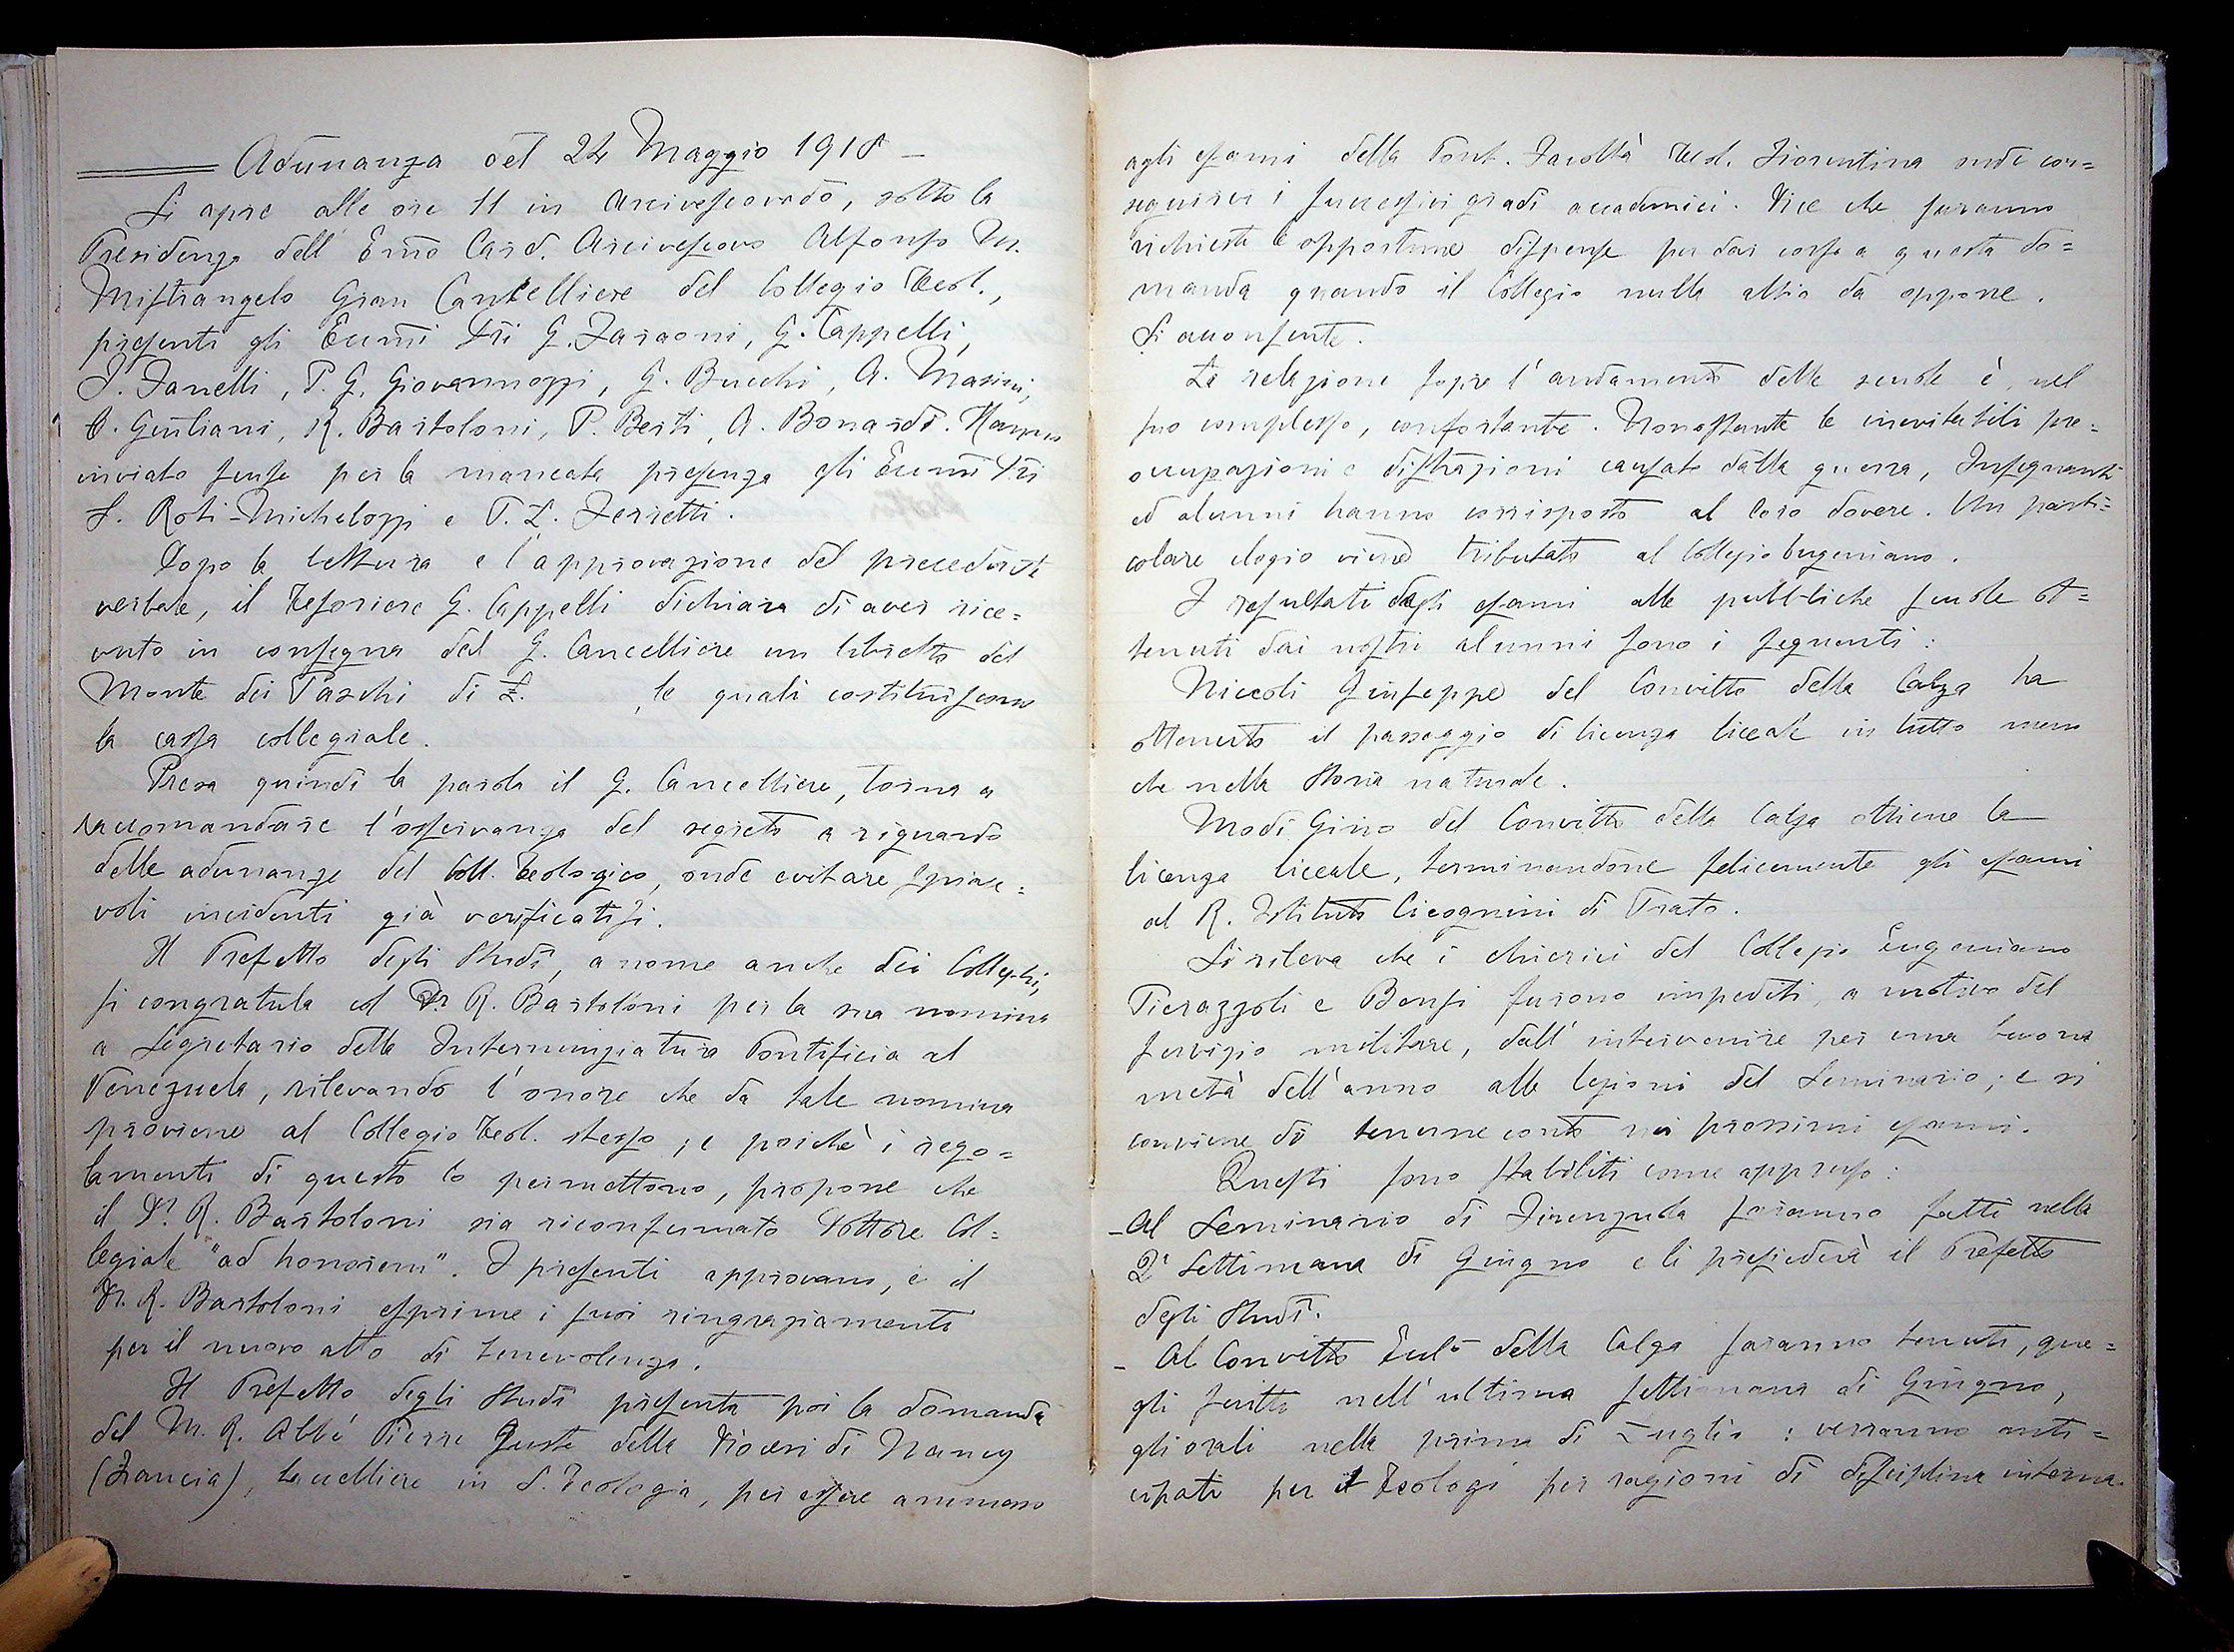 Adunanza del 24 Maggio 1918 -
Si apre alle ore 11 in Arcivescovado, sotto la
Presidenza dell' Emo Card. Arcivescovo Alfonso M.
Mistrangelo Gran Cancelliere del Collegio Teol.,
presenti gli Eccmi Dri G. Faraoni, G. Cappelli,
F. Fanelli, P. G. Giovannozzi, G. Bucchi, A. Masini,
O. Giuliani, R. Bartoloni, P. Berti, A. Bonardi. Hanno
inviato scuse per la mancata presenza gli Eccmi Dri
S. Roti-Michelozzi e P. L. Ferretti.
Dopo la lettura e l'approvazione del precedente
verbale, il Tesoriere G. Cappelli dichiara di aver rice=
vuto in consegna dal G. Cancelliere un libretto del
Monte dei Paschi di £. , le quali costituiscono
la cassa collegiale.
Presa quindi la parola il G. Cancelliere, torna a
raccomandare l'osservanza del segreto a riguardo
delle adunanze del Coll. Teologico, onde evitare spiace=
voli incidenti già verificatisi.
Il Prefetto degli Studî, a nome anche dei Colleghi,
si congratula col Dr R. Bartoloni per la sua nomina
a Segretario della Internunziatura Pontificia al
Venezuela, rilevando l'onore che da tale nomina
proviene al Collegio Teol. stesso; e poichè i rego=
lamenti di questo lo permettono, propone che
il Dr. R. Bartoloni sia riconfermato Dottore Col=
legiale "ad honorem". I presenti approvano, e il
Dr. R. Bartoloni esprime i suoi ringraziamenti
per il nuovo atto di benevolenza.
Il Prefetto degli Studî presenta poi la domanda
del M. R. Abbé Pierre Juste della Diocesi di Nancy
(Francia), baccelliere in S. Teologia, per essere ammesso
agli esami della Pont. Facoltà Teol. Fiorentina onde con=
seguirvi i successivi gradi accademici. Dice che saranno
richieste le opportune dispense per dar corso a questa do=
manda quando il Collegio nulla abbia da opporre.
Si acconsente.
La relazione sopra l'andamento delle scuole è, nel
suo complesso, confortante. Nonostante le inevitabili pre=
occupazioni e distrazioni causate dalla guerra, Insegnanti
ed alunni hanno corrisposto al loro dovere. Un parti=
colare elogio viene tributato al Collegio Eugeniano.
I resultati degli esami alle pubbliche scuole ot=
tenuti dai nostri alunni sono i seguenti:
Niccoli Giuseppe del Convitto della Calza ha
ottenuto il passaggio di licenza liceale in tutto meno
che nella Storia naturale.
Modi Gino del Convitto della Calza ottiene la
licenza liceale, terminandone felicemente gli esami
al R. Istituto Cicognini di Prato.
Si rileva che i chierici del Collegio Eugeniano
Pierazzoli e Bensi furono impediti, a motivo del
servizio militare, dall'intervenire per una buona
metà dell'anno alle lezioni del Seminario; e si
conviene di tenerne conto nei prossimi esami.
Questi sono stabiliti come appresso:
- Al Seminario di Firenzuola saranno fatti nella
2ª Settimana di Giugno e li presiederà il Prefetto
degli Studî.
- Al Convitto Eccl. della Calza saranno tenuti, que=
gli scritti nell'ultima settimana di Giugno,
gli orali nella prima di Luglio: verranno anti=
cipati per i Teologi per ragioni di disciplina interna.